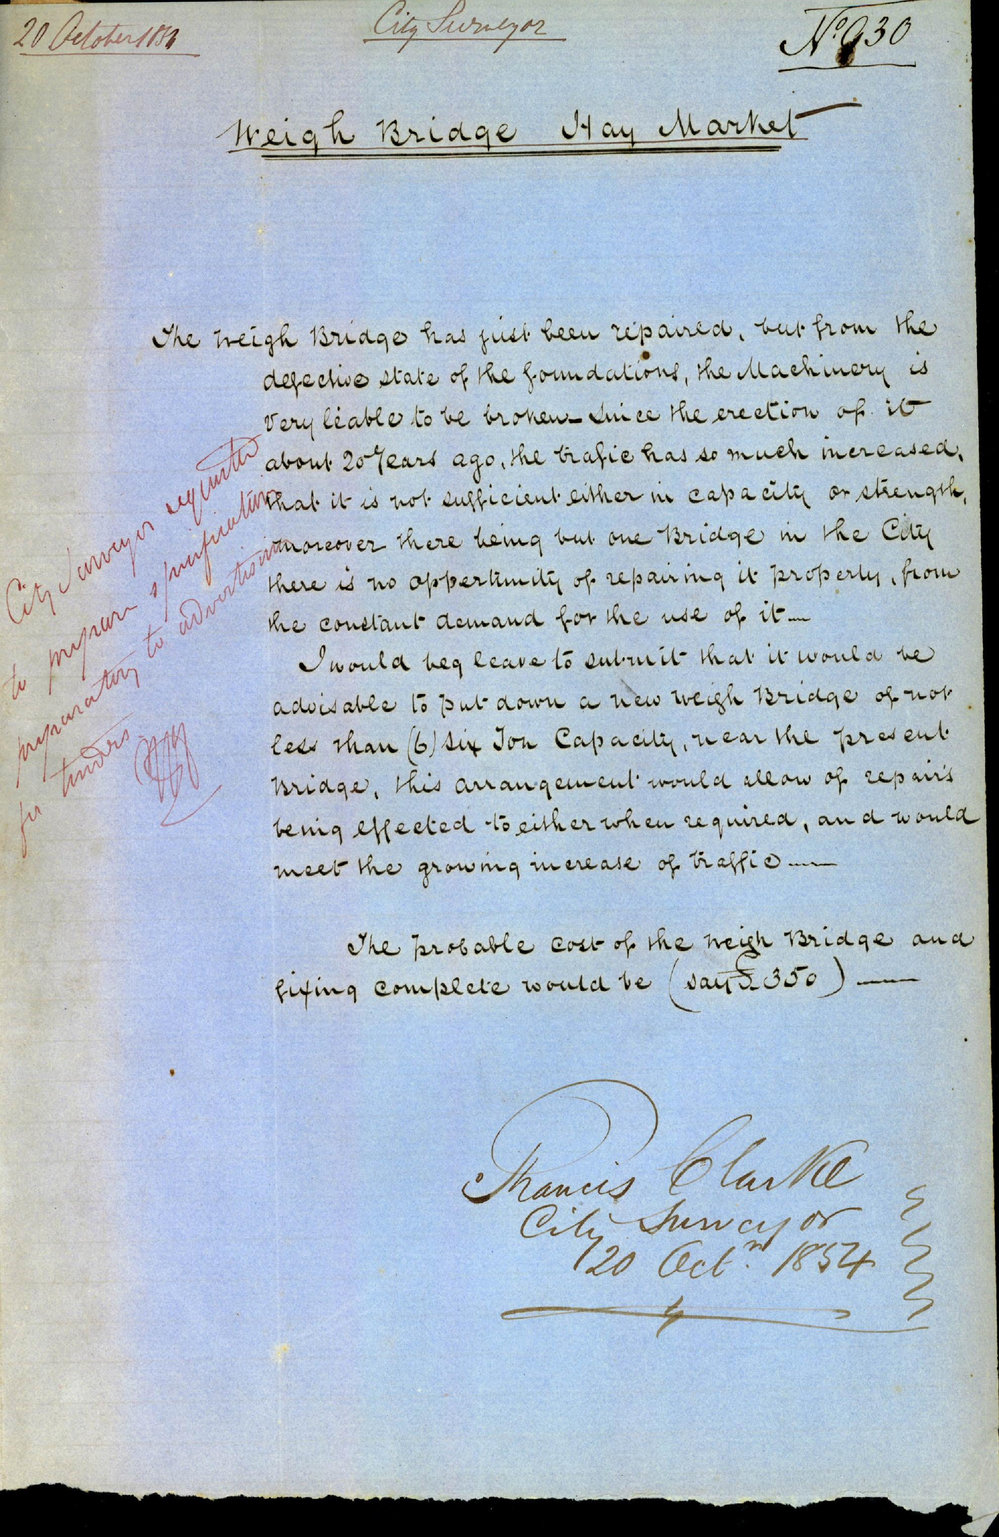 20 October 1854
City Surveyor
No. 930
Weigh Bridge Hay Market
The Weigh Bridge has just been repaired, but from the
defective state of the foundations, the Machinery is
very liable to be broken_ Since the erection of it
about 20 Years ago, the trafic has so much increased,
that it is not sufficient either in capacity or strength,
moreover there being but one Bridge in the City
there is no oppertunity of repairing it properly, from
the constant demand for the use of it —
I would beg leave to submit that it would be
advisable to put down a new Weigh Bridge of not
less than (6) Six Ton Capacity, near the present
Bridge, this arrangement would allow of repairs
being effected to either when required, and would
meet the growing increase of traffic —
The probable cost of the Weigh Bridge and
fixing complete would be (say £350) —
City Surveyor requested
to prepare specification
preparatory to advertising
for tenders
Francis Clarke
City Surveyor
20 Oct. 1854